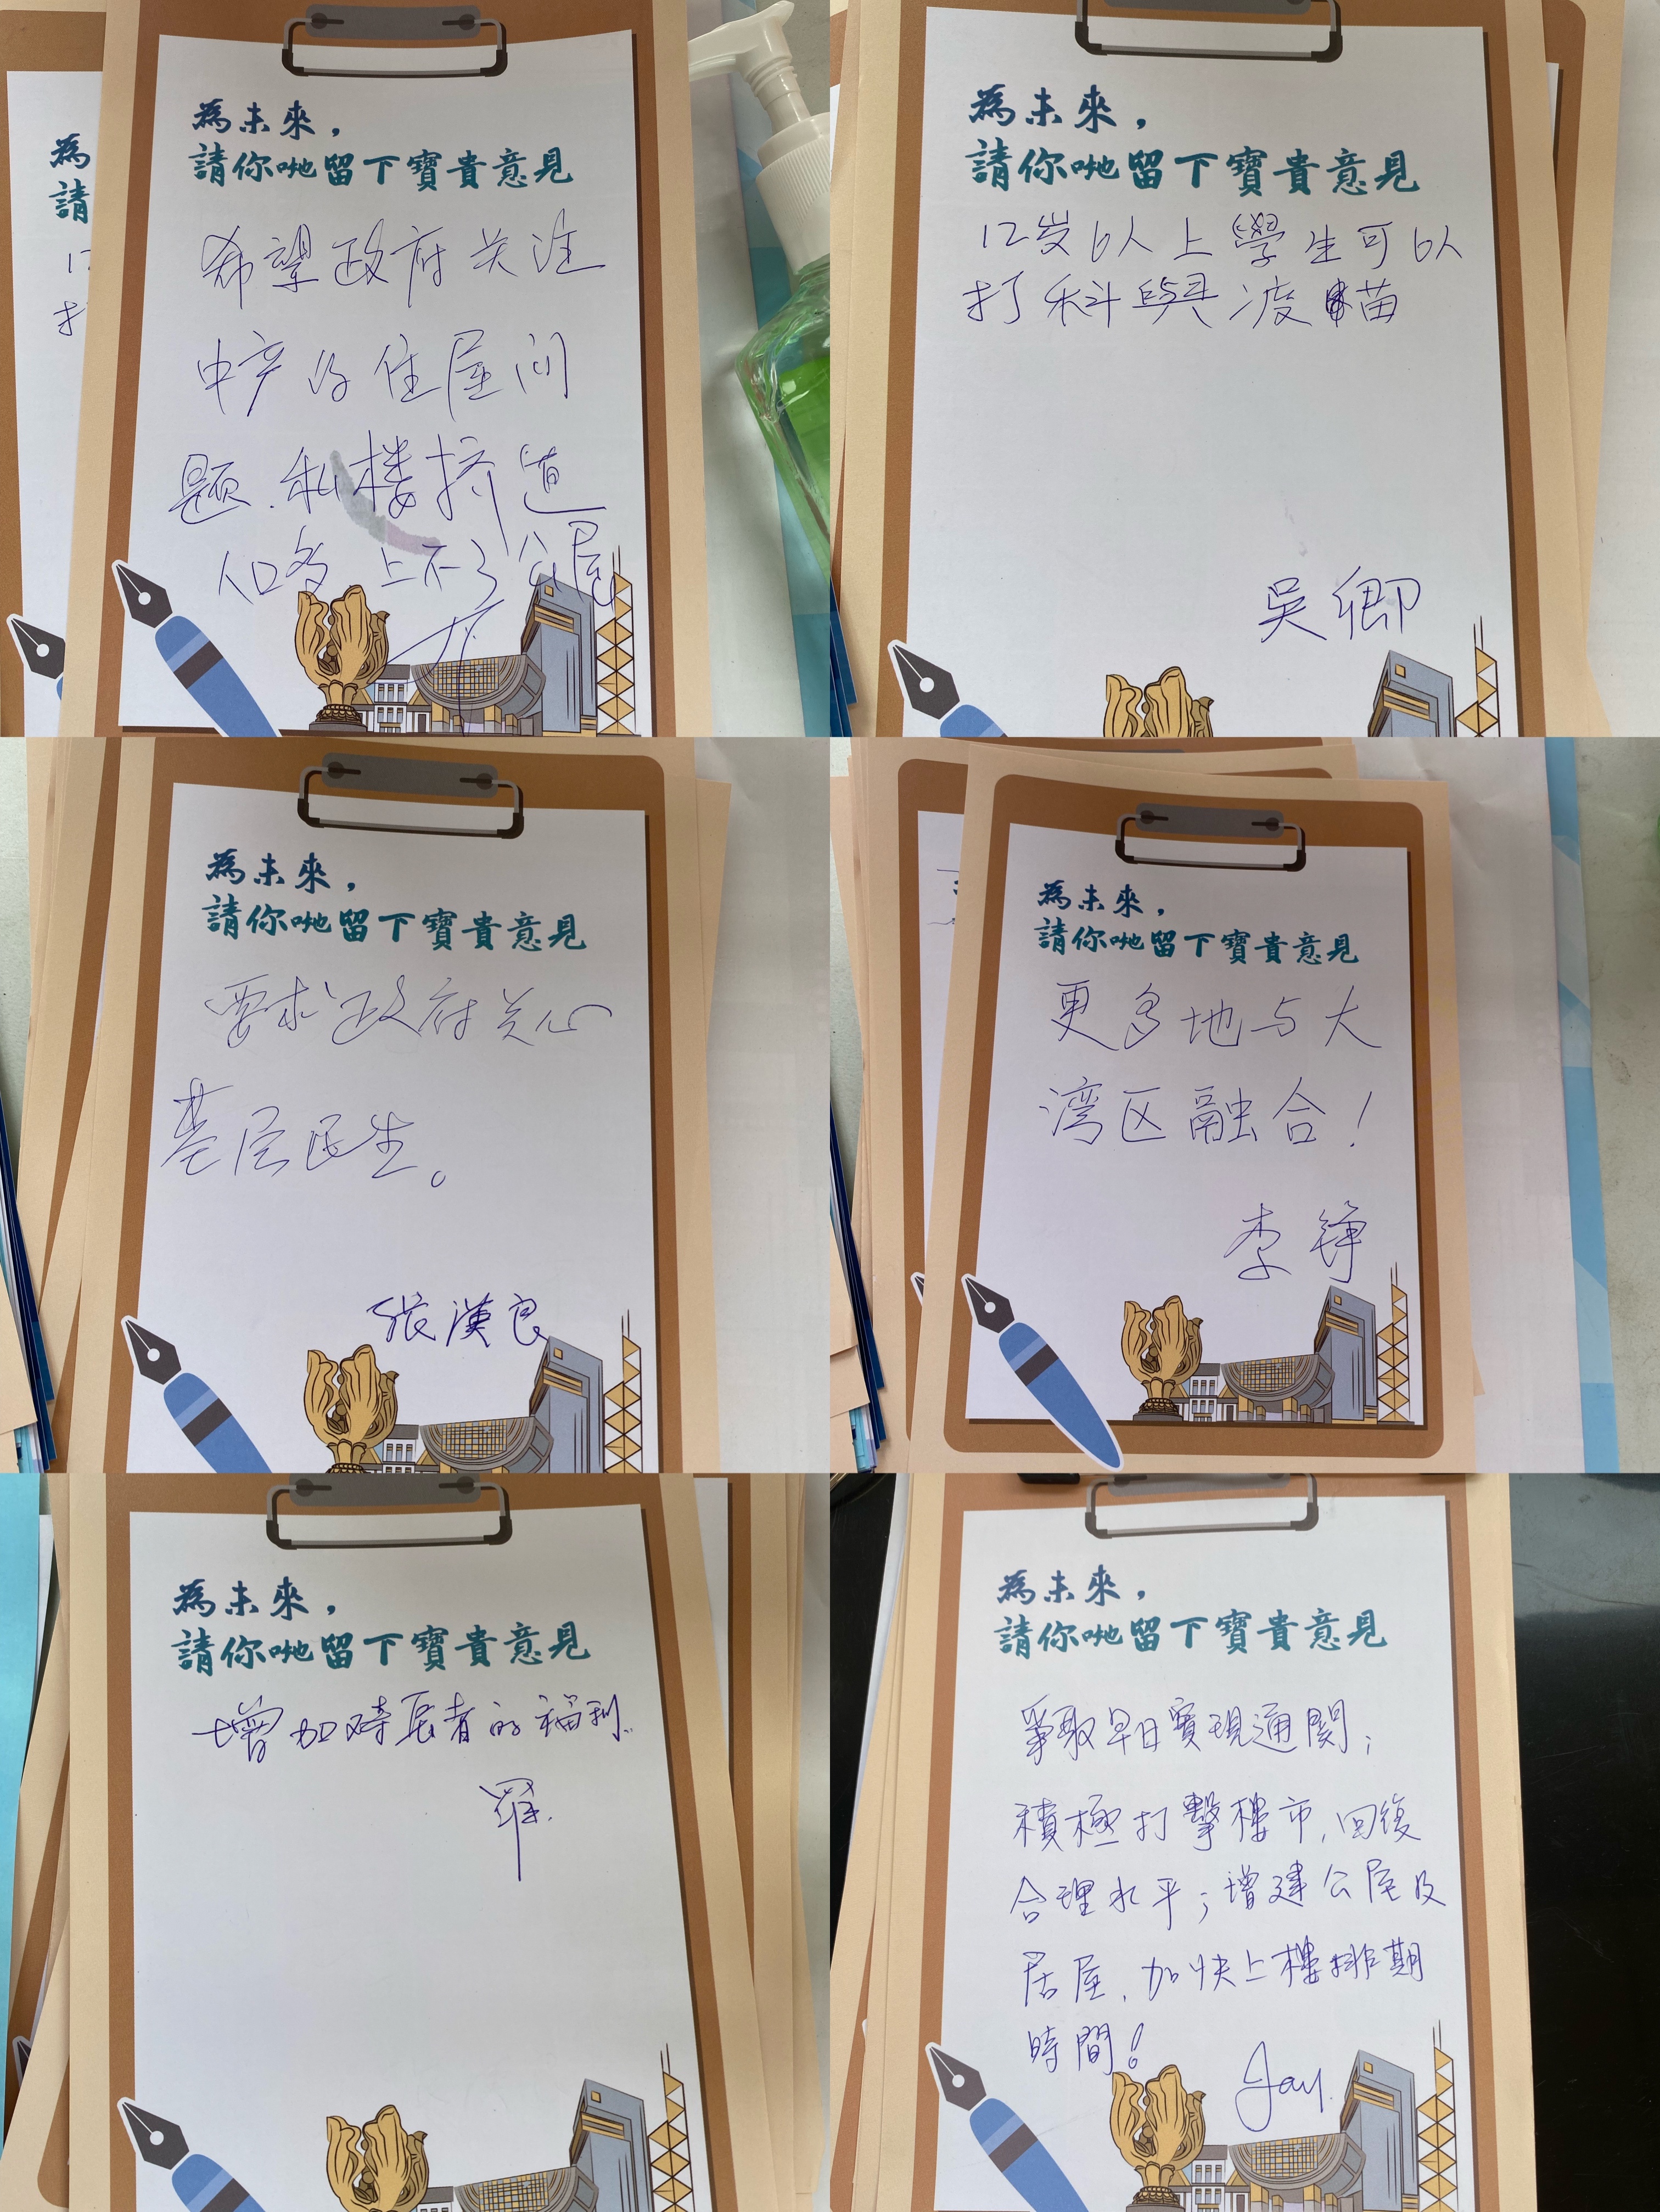 為未來，
請你哋留下寶貴意見
希望政府关注
中产的住屋问
题.私楼挤逼
人口多 上不了公屋
為
請
12
打
為未來，
請你哋留下寶貴意見
12岁以人上學生可以
打科與疫苗
吳卿
為未來，
請你哋留下寶貴意見
要求政府关心
基层民生。
張漢良
為未來，
請你哋留下寶貴意見
更多地与大
湾区融合！
李铮
為未來，
請你哋留下寶貴意見
增加對長者的福利.
羅.
為未來，
請你哋留下寶貴意見
爭取早日實現通関；
積極打擊樓市,回復
合理水平；增建公屋及
居屋,加快上樓排期
時間！
Jay.